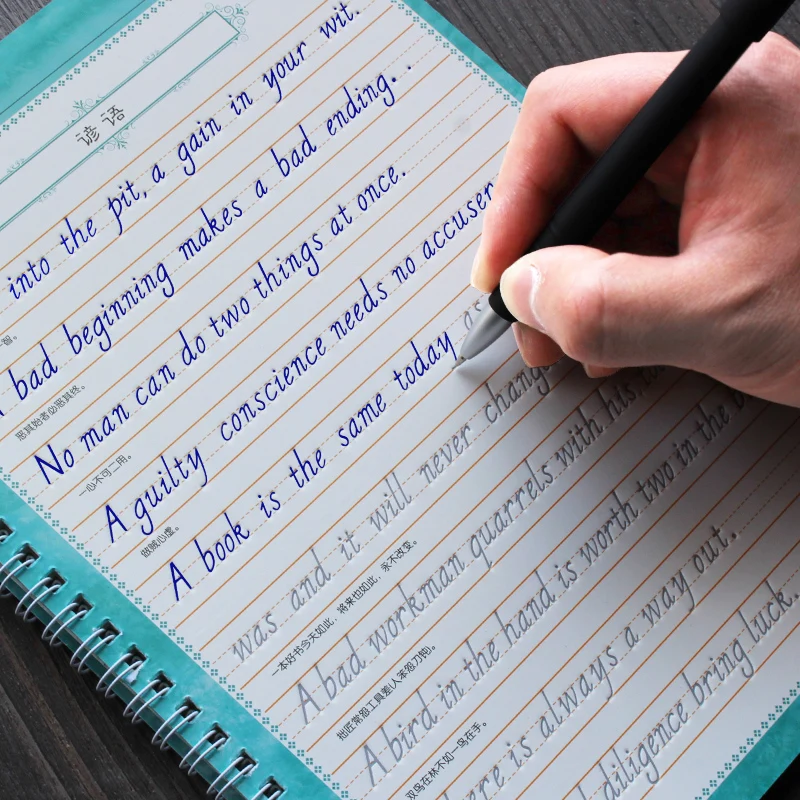 谚语
into the pit, a gain in your wit.
一智。
bad beginning makes a bad ending..
恶其始者必恶其终。
No man can do two things at once.
一心不可二用。
A guilty conscience needs no accuser
做贼心虚。
A book is the same today as
was and it will never change
一本好书今天如此，将来也如此，永不改变。
A bad workman quarrels with his
拙匠常怨工具差(人笨怨刀钝)。
A bird in the hand is worth two in the
双鸟在林不如一鸟在手。
ere is always a way out.
diligence bring luck.